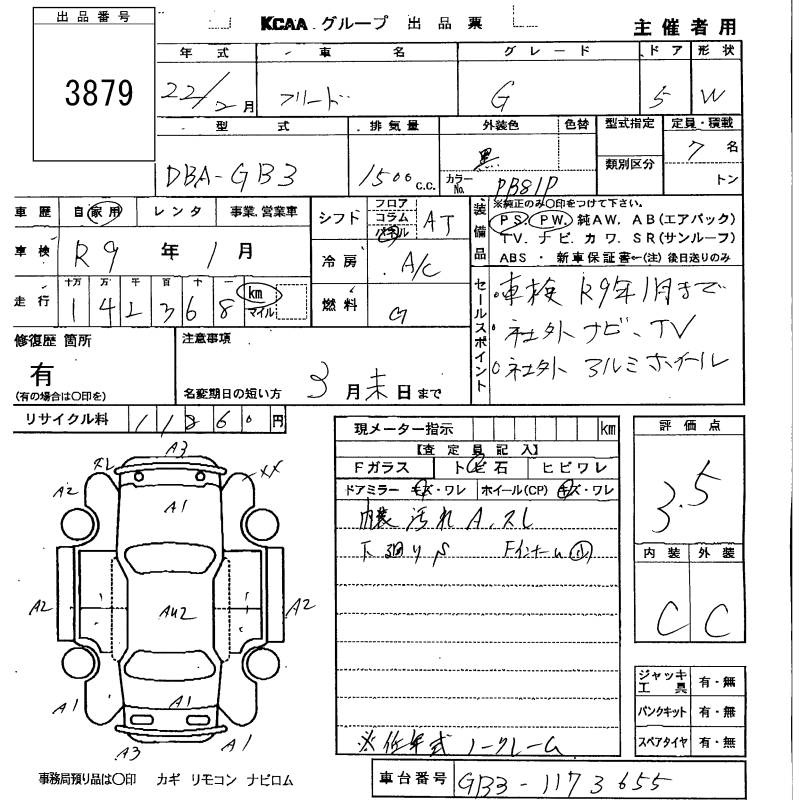 出品番号
3879
KCAA グループ 出品票
主催者用
年式 車名 グレード ドア 形状
22/2月 フリード G 5 W
型式 排気量 外装色 色替 型式指定 定員・積載
DBA-GB3 1500 c.c. 黒 カラーNo. PB81P 類別区分 7名 トン
車歴 自家用 レンタ 事業、営業車
車検 R9年1月
走行 十万 万 千 百 十 一
142368 km マイル
シフト フロア コラム パネル AT
冷房 A/C
燃料 G
装備品
※純正のみ〇印をつけて下さい。
PS. PW. 純AW. AB(エアバック)
TV. ナビ. カワ. SR(サンルーフ)
ABS ・ 新車保証書←(注)後日送りのみ
セールスポイント
車検 R9年1月まで
社外ナビ、TV
社外アルミホイール
修復歴 箇所
有
(有の場合は〇印を)
注意事項
名変期日の短い方 3月末日まで
リサイクル料 11260円
現メーター指示 km
【査定員記入】
Fガラス トビ石 ヒビワレ
ドアミラー キズ・ワレ ホイール(CP) キズ・ワレ
内装汚れ A.スレ
下廻りS Fインナー小
※低年式 ノークレーム
評価点
3.5
内装 外装
C C
ジャッキ工具 有・無
パンクキット 有・無
スペアタイヤ 有・無
A3
XX
A2
A1
A2
AU2
A2
A1
A1
A3
A1
事務局預り品は〇印 カギ リモコン ナビロム
車台番号 GB3-1173655